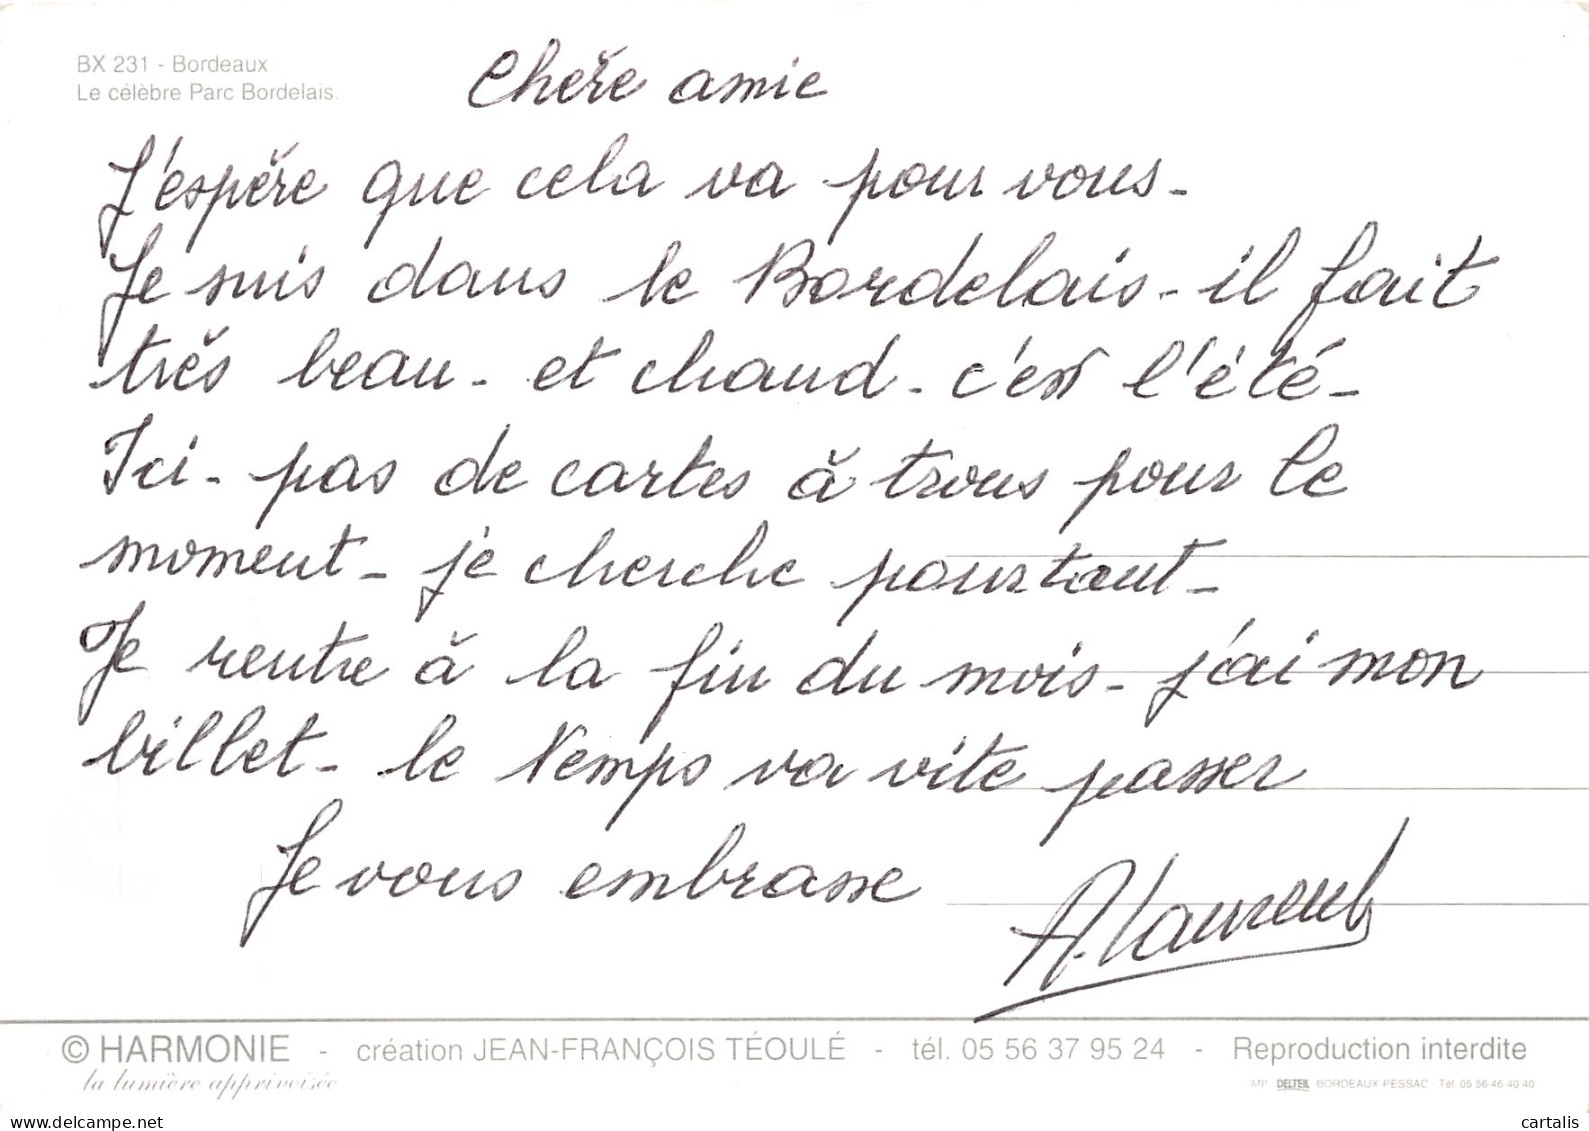 BX 231 - Bordeaux
Le célèbre Parc Bordelais.
Chère amie
J'espère que cela va pour vous -
Je suis dans le Bordelais - il fait
très beau - et chaud - c'est l'été -
Ici - pas de cartes à trous pour le
moment - je cherche pourtant -
Je rentre à la fin du mois - j'ai mon
billet - le temps va vite passer
Je vous embrasse
A. Laurent
© HARMONIE - création JEAN-FRANÇOIS TÉOULÉ - tél. 05 56 37 95 24 - Reproduction interdite
la lumière apprivoisée
IMP. DELTEIL BORDEAUX PESSAC - Tél. 05 56 46 40 40
www.delcampe.net
cartalis